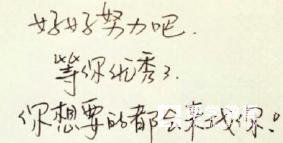 好好努力吧.
等你优秀了.
你想要的都会来找你。